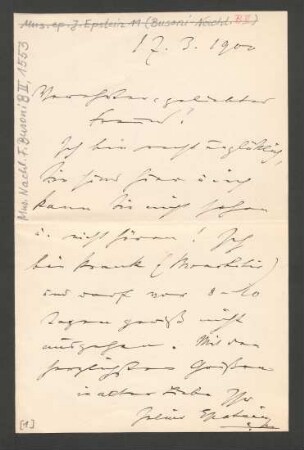 Mus. ep. J. Epstein 11 (Busoni-Nachl. B II)
Mus. Nachl. F. Busoni B II, 1553
17. 3. 1900
Verehrter, geliebter
Freund!
Ich bin recht unglücklich,
Sie sind hier u. ich
kann Sie nicht sehen
u. nicht hören! Ich
bin krank (Bronchitis)
und darf vor 8–10
Tagen gewiß nicht
ausgehen. Mit den
herzlichsten Grüßen
in alter Liebe Ihr
Julius Epstein
[1]